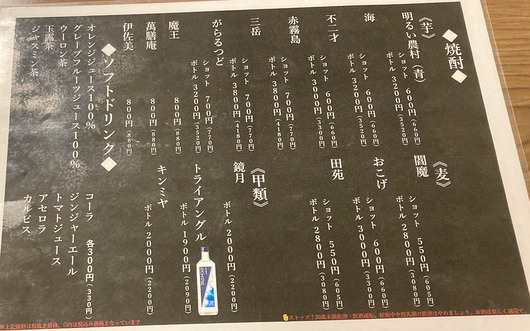 ◆焼酎◆
《芋》
明るい農村（青）
ショット 600円（660）
ボトル 3200円（3520）
海
ショット 600円（660）
ボトル 3200円（3520）
不二才
ショット 600円（660）
ボトル 3000円（3300）
赤霧島
ショット 700円（770）
ボトル 3800円（4180）
三岳
ショット 700円（770）
ボトル 3800円（4180）
がらるっど
ショット 700円（770）
ボトル 3200円（3520）
魔王
800円（880）
萬膳庵
800円（880）
伊佐美
800円（880）
《麦》
閻魔
ショット 550円（605）
ボトル 2800円（3080）
おこげ
ショット 600円（660）
ボトル 3000円（3300）
田苑
ショット 550円（605）
ボトル 2800円（3080）
《甲類》
鏡月
ボトル 2000円（2200）
トライアングル
ボトル 1900円（2090）
キンミヤ
ボトル 2000円（2200）
◆ソフトドリンク◆
オレンジジュース100％
グレープフルーツジュース100％
ウーロン茶
玉露茶
ジャスミン茶
コーラ 各300円（330円）
ジンジャーエール
トマトジュース
アセロラ
カルピス
ストップ！20歳未満飲酒・飲酒運転。妊娠中や授乳期の飲酒はやめましょう。お酒は楽しく適量で